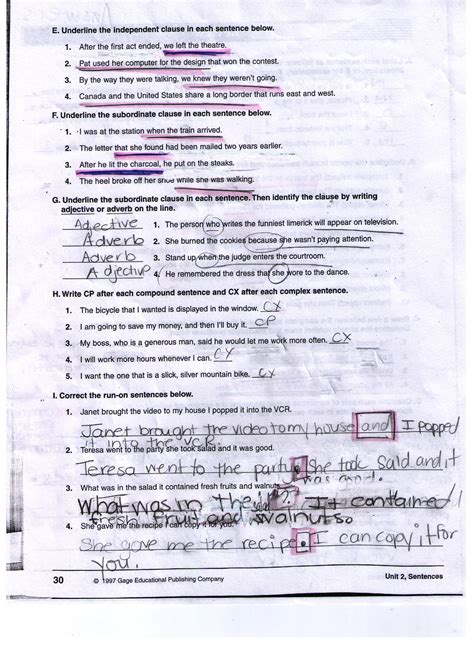 E. Underline the independent clause in each sentence below.
1. After the first act ended, we left the theatre.
2. Pat used her computer for the design that won the contest.
3. By the way they were talking, we knew they weren't going.
4. Canada and the United States share a long border that runs east and west.
F. Underline the subordinate clause in each sentence below.
1. I was at the station when the train arrived.
2. The letter that she found had been mailed two years earlier.
3. After he lit the charcoal, he put on the steaks.
4. The heel broke off her shoe while she was walking.
G. Underline the subordinate clause in each sentence. Then identify the clause by writing
adjective or adverb on the line.
Adjective 1. The person who writes the funniest limerick will appear on television.
Adverb 2. She burned the cookies because she wasn't paying attention.
Adverb 3. Stand up when the judge enters the courtroom.
Adjective 4. He remembered the dress that she wore to the dance.
H. Write CP after each compound sentence and CX after each complex sentence.
1. The bicycle that I wanted is displayed in the window. CX
2. I am going to save my money, and then I'll buy it. CP
3. My boss, who is a generous man, said he would let me work more often. CX
4. I will work more hours whenever I can. CX
5. I want the one that is a slick, silver mountain bike. CX
I. Correct the run-on sentences below.
1. Janet brought the video to my house I popped it into the VCR.
Janet brought the video to my house and I popped
it into the VCR.
2. Teresa went to the party she took salad and it was good.
Teresa went to the party. She took salad and it
was good.
3. What was in the salad it contained fresh fruits and walnuts
What was in the ? It contained
fresh fruit and walnuts.
4. She gave me the recipe I can copy it for you.
She gave me the recipe. I can copy it for
you.
30 © 1997 Gage Educational Publishing Company Unit 2, Sentences